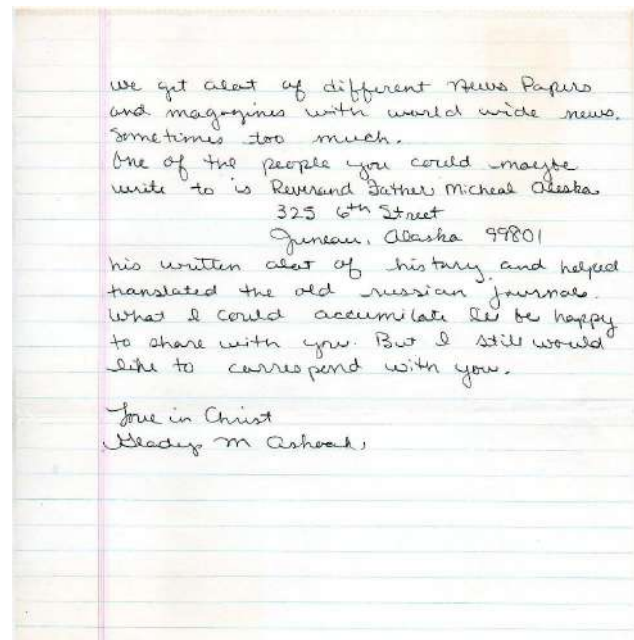 we get alot of different News Papers
and magazines with world wide news.
Sometimes too much.
One of the people you could maybe
write to is Reverand Father Micheal Oleska
325 6th Street
Juneau, Alaska 99801
his written alot of history and helped
translated the old russian journals.
What I could accumilate I'll be happy
to share with you. But I still would
like to correspond with you.
Love in Christ
Gladys M